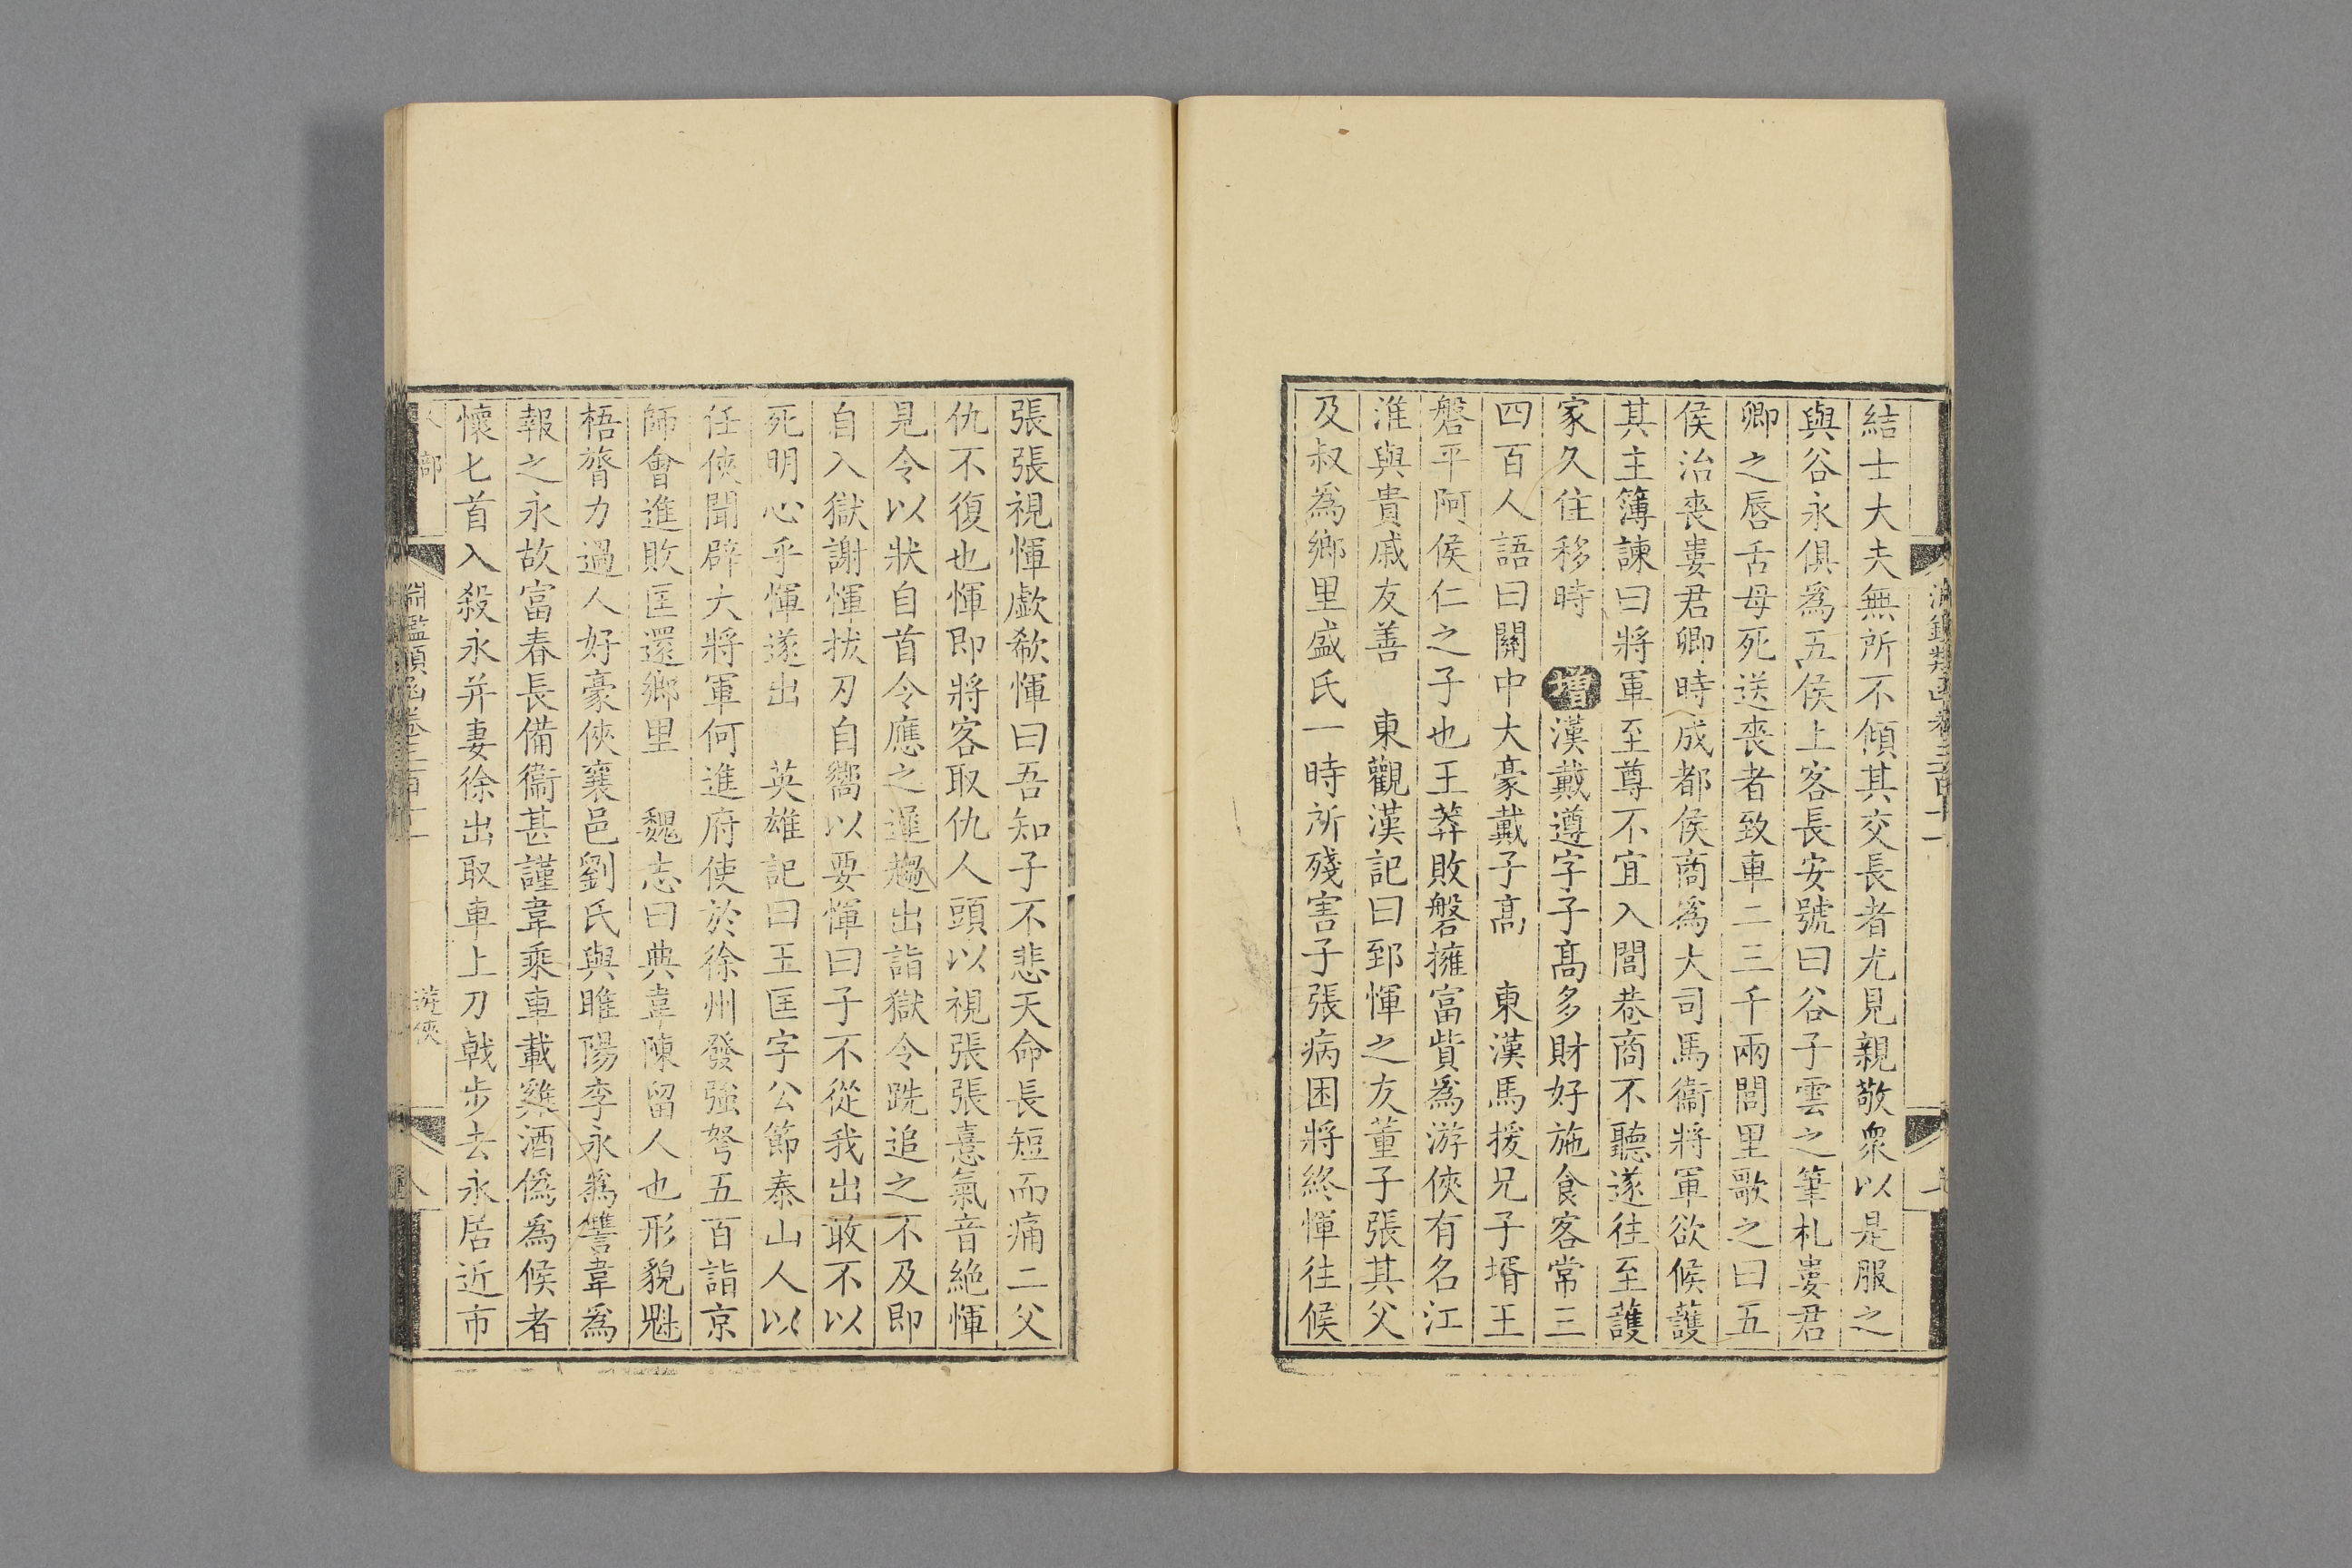 結士大夫無所不傾其交長者尤見親敬衆以是服之
與谷永俱爲五侯上客長安號曰谷子雲之筆札婁君
卿之唇舌母死送喪者致車二三千兩閭里歌之曰五
侯治喪婁君卿時成都侯商爲大司馬衞將軍欲候護
其主簿諫曰將軍至尊不宜入閭巷商不聽遂往至護
家久住移時 增漢戴遵字子高多財好施食客常三
四百人語曰關中大豪戴子高 東漢馬援兄子壻王
磐平阿侯仁之子也王莽敗磐擁富貲爲游俠有名江
淮與貴戚友善 東觀漢記曰郅惲之友董子張其父
及叔爲鄉里盛氏一時所殘害子張病困將終惲往候
張張視惲歔欷惲曰吾知子不悲天命長短而痛二父
仇不復也惲即將客取仇人頭以視張張憙氣音絕惲
見令以狀自首令應之遲趨出詣獄令跣追之不及即
自入獄謝惲拔刃自嚮以要惲曰子不從我出敢不以
死明心乎惲遂出 英雄記曰王匡字公節泰山人以
任俠聞辟大將軍何進府使於徐州發強弩五百詣京
師會進敗匡還鄉里 魏志曰典韋陳留人也形貌魁
梧膂力過人好豪俠襄邑劉氏與睢陽李永爲讐韋爲
報之永故富春長備衞甚謹韋乘車載雞酒僞爲候者
懷匕首入殺永并妻徐出取車上刀戟步去永居近市
淵鑑類函卷三百十一
游俠